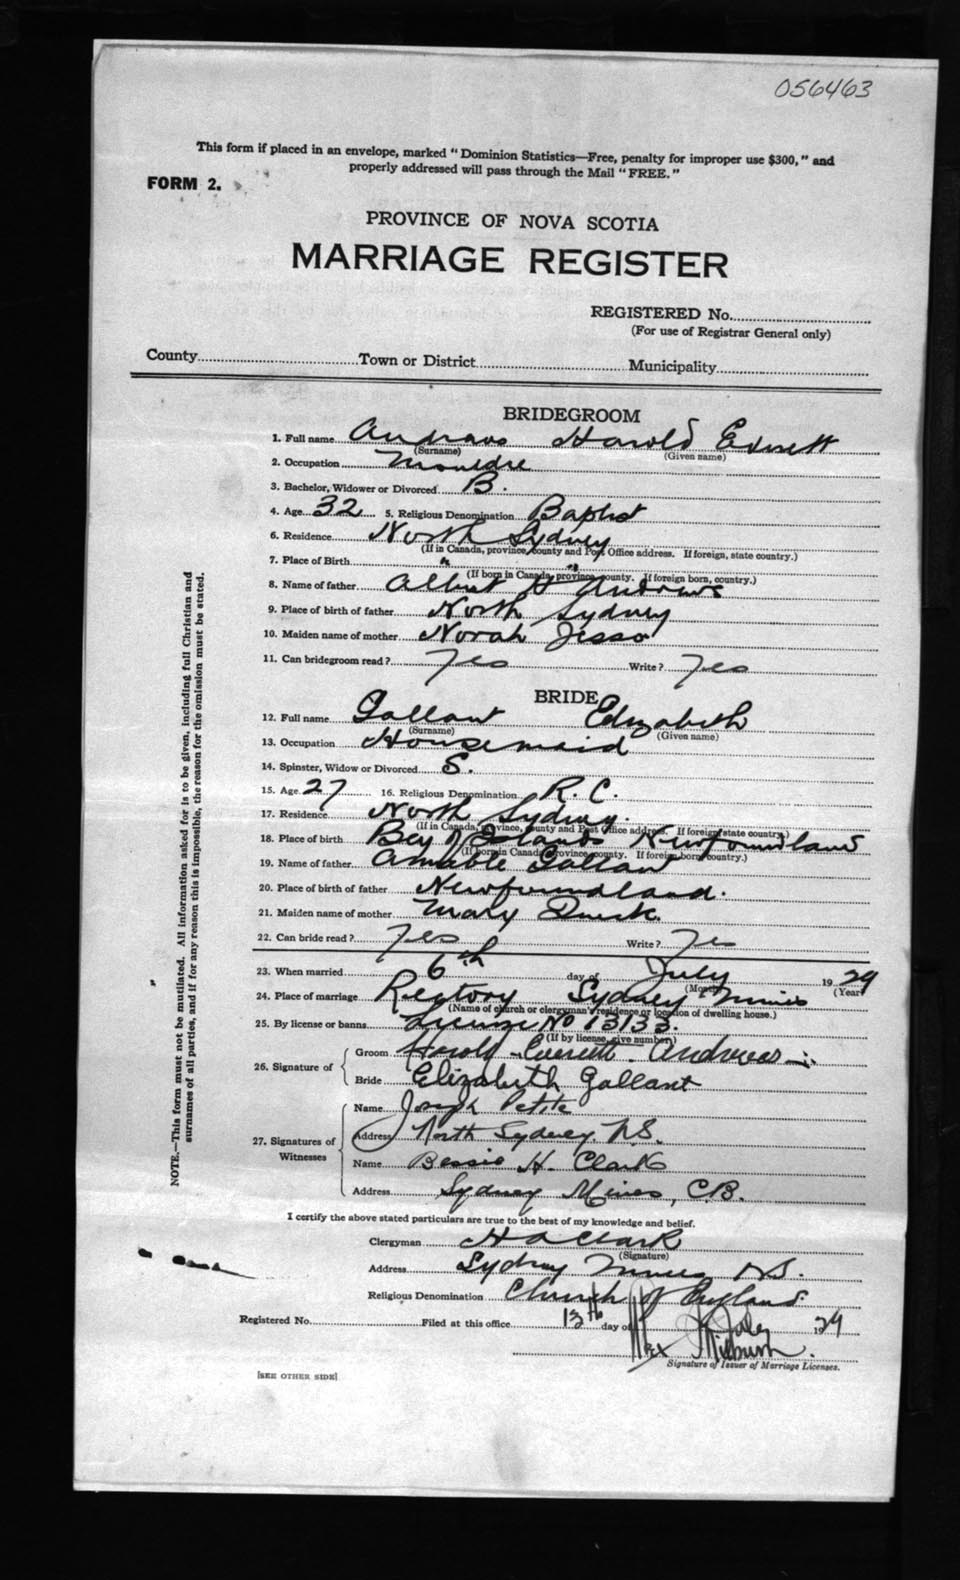 056463
This form if placed in an envelope, marked "Dominion Statistics—Free, penalty for improper use $300," and
properly addressed will pass through the Mail "FREE."
FORM 2.
PROVINCE OF NOVA SCOTIA
MARRIAGE REGISTER
REGISTERED No.
(For use of Registrar General only)
County Town or District Municipality
BRIDEGROOM
1. Full name Andrews Harold Everett
(Surname) (Given name)
2. Occupation
3. Bachelor, Widower or Divorced B.
4. Age 32 5. Religious Denomination Baptist
6. Residence North Sydney
(If in Canada, province, county and Post Office address. If foreign, state country.)
7. Place of Birth " "
(If born in Canada, province, county. If foreign born, country.)
8. Name of father Albert H Andrews
9. Place of birth of father North Sydney
10. Maiden name of mother Norah Jesso
11. Can bridegroom read? Yes Write? Yes
BRIDE
12. Full name Gallant Elizabeth
(Surname) (Given name)
13. Occupation Housemaid
14. Spinster, Widow or Divorced S.
15. Age 27 16. Religious Denomination R. C.
17. Residence North Sydney.
(If in Canada, province, county and Post Office address. If foreign, state country.)
18. Place of birth Bay of Islands Newfoundland
(If born in Canada, province, county. If foreign born, country.)
19. Name of father Amable Gallant
20. Place of birth of father Newfoundland.
21. Maiden name of mother Mary
22. Can bride read? Yes Write? Yes
23. When married 6th day of July 1929
(Month) (Year)
24. Place of marriage Rectory Sydney Mines
(Name of church or clergyman's residence or location of dwelling house.)
25. By license or banns License No 13133.
(If by license, give number)
26. Signature of Groom Harold Everett Andrews
Bride Elizabeth Gallant
27. Signatures of Witnesses Name Joseph Petite
Address North Sydney N.S.
Name Bessie H. Clark
Address Sydney Mines, C.B.
I certify the above stated particulars are true to the best of my knowledge and belief.
Clergyman H A Clark
(Signature)
Address Sydney Mines N.S.
Religious Denomination Church of England.
Registered No. Filed at this office 13th day of July 1929
Signature of Issuer of Marriage Licenses.
[SEE OTHER SIDE]
NOTE.—This form must not be mutilated. All information asked for is to be given, including full Christian and
surnames of all parties, and if for any reason this is impossible, the reason for the omission must be stated.